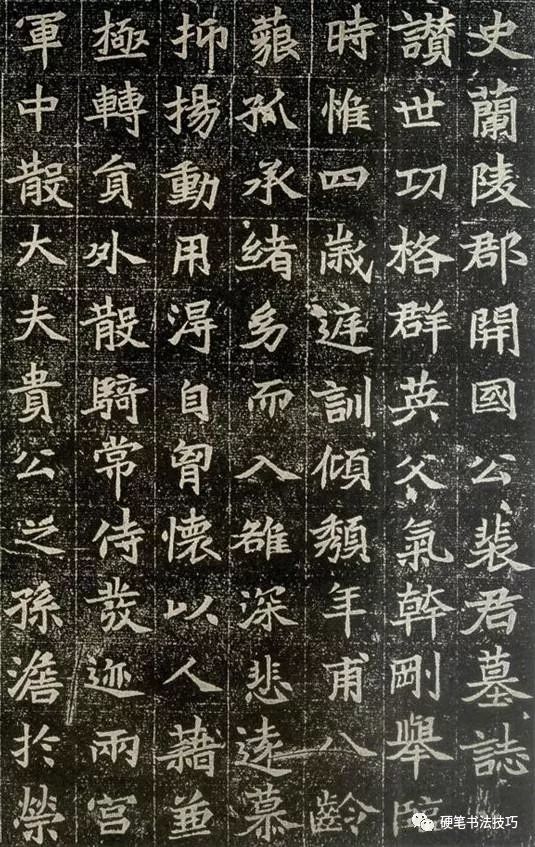 史蘭陵郡開國公裴君墓誌
讃世功格群英父氣幹剛舉
時惟四歲庭訓傾頹年甫八齡
藐孤承緒幼而入雒深悲遠慕
抑揚動用淂自胷懷以人藉並
極轉負外散騎常侍發迹兩宮
軍中散大夫貴公之孫澹於榮
硬笔书法技巧